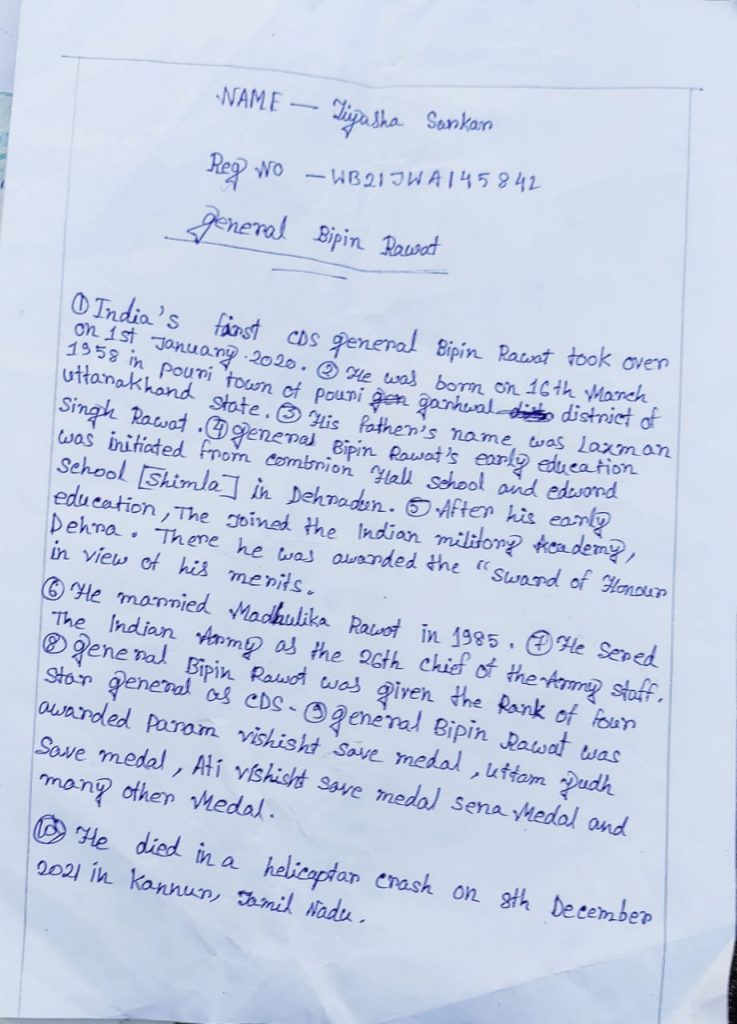 NAME — Tiyasha Sarkar
Reg NO — WB21JWA145842
General Bipin Rawat
① India's first CDS General Bipin Rawat took over
on 1st January 2020. ② He was born on 16th March
1958 in pouri town of pouri garhwal district of
uttarakhand state. ③ His father's name was Laxman
Singh Rawat. ④ General Bipin Rawat's early education
was initiated from combrion Hall School and edword
School [Shimla] in Dehradun. ⑤ After his early
education, The Joined the Indian military Academy,
Dehra. There he was awarded the "Sward of Honour
in view of his merits.
⑥ He married Madhulika Rawot in 1985. ⑦ He Served
The Indian Army as the 26th chief of the Army staff.
⑧ General Bipin Rawot was given the Rank of four
star General as CDS- ⑨ General Bipin Rawat was
awarded Param vishisht save medal, uttam yudh
Save medal, Ati vishisht save medal sena Medal and
many other Medal.
⑩ He died in a helicoptar crash on 8th December
2021 in Kannur, Tamil Nadu.